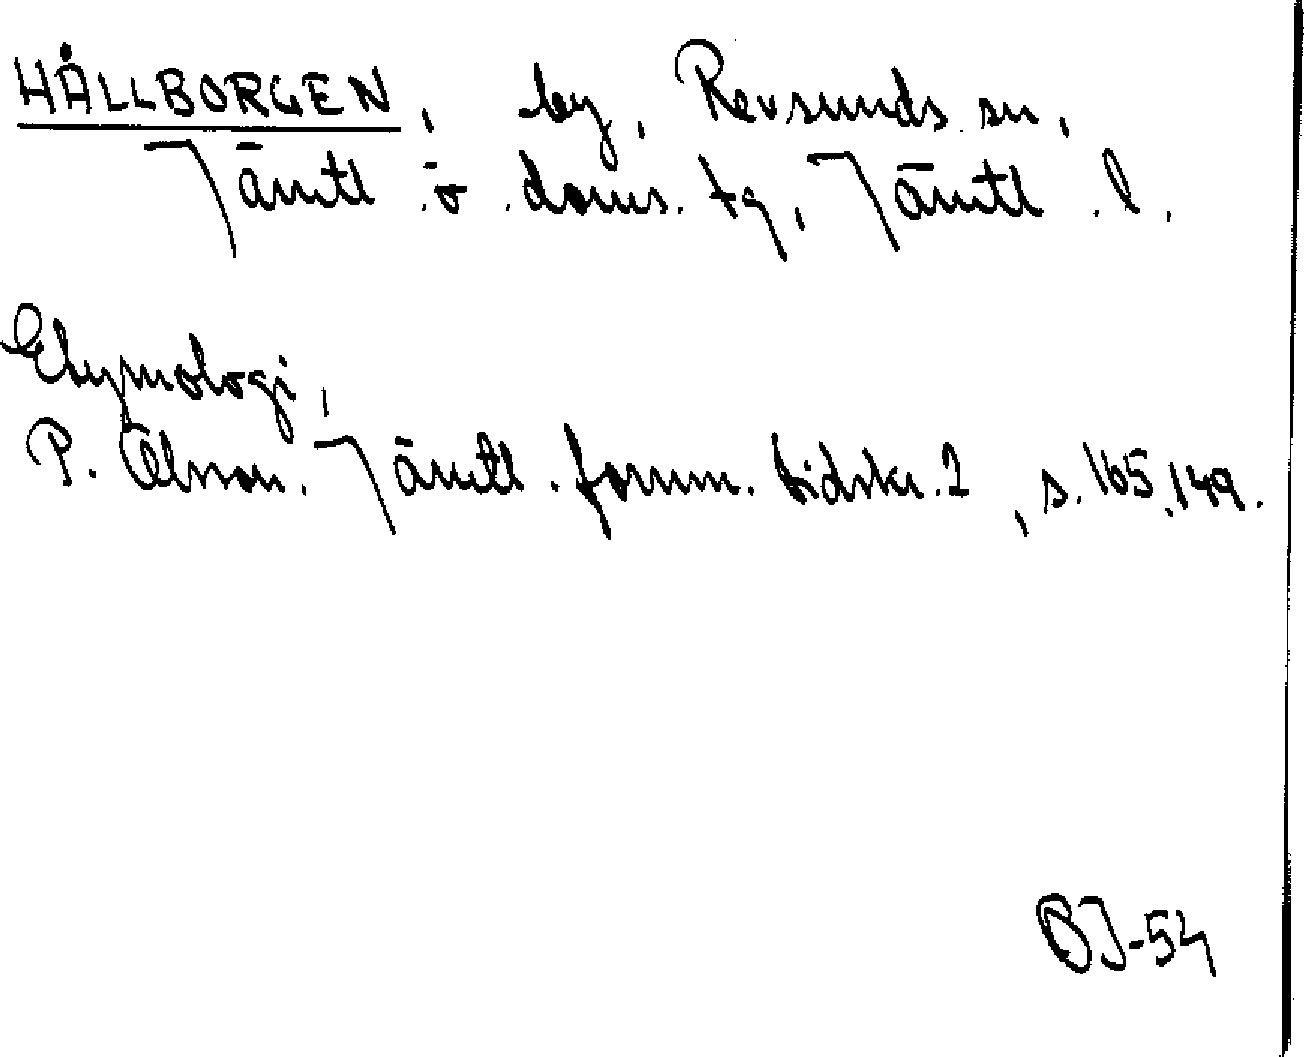 HÅLLBORGEN, by, Revsunds sn,
Jämtl. ö. doms. tg, Jämtl. l.
Etymologi,
P. Olsson. Jämtl. fornm. tidskr. 2, s. 165, 149.
BJ-54